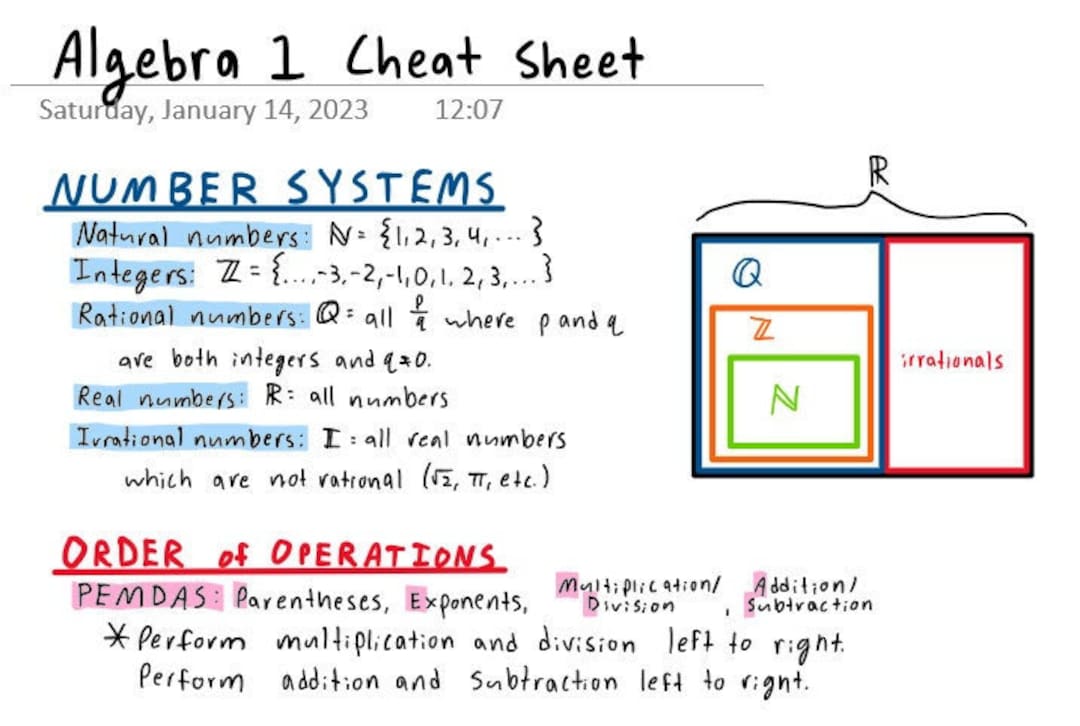 Algebra 1 Cheat Sheet
Saturday, January 14, 2023 12:07
NUMBER SYSTEMS
Natural numbers: ℕ = {1, 2, 3, 4, ... }
Integers: ℤ = {..., -3, -2, -1, 0, 1, 2, 3, ... }
Rational numbers: ℚ = all p/q where p and q
are both integers and q ≠ 0.
Real numbers: ℝ = all numbers
Irrational numbers: 𝕀 = all real numbers
which are not rational (√2, π, etc.)
ℝ
ℚ
ℤ
ℕ
irrationals
ORDER of OPERATIONS
PEMDAS: Parentheses, Exponents, Multiplication/ Division, Addition/ Subtraction
* Perform multiplication and division left to right.
Perform addition and subtraction left to right.